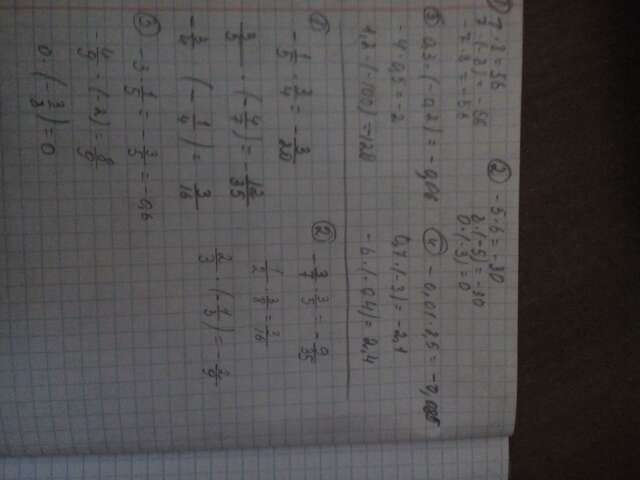 1) 7 · 8 = 56
7 · (-8) = -56
-7 · 8 = -56
2) -5 · 6 = -30
6 · (-5) = -30
0 · (-3) = 0
3) 0,3 · (-0,2) = -0,06
-4 · 0,5 = -2
1,2 · (-100) = -120
4) -0,01 · 2,5 = -0,025
0,7 · (-3) = -2,1
-6 · (-0,4) = 2,4
1) -1/5 · 3/4 = -3/20
3/5 · (-4/7) = -12/35
-3/4 (-1/4) = 3/16
2) -3/7 · 3/5 = -9/35
1/2 · 3/8 = 3/16
2/3 · (-1/3) = -2/9
3) -3 · 1/5 = -3/5 = -0,6
-4/9 · (-2) = 8/9
0 · (-2/3) = 0